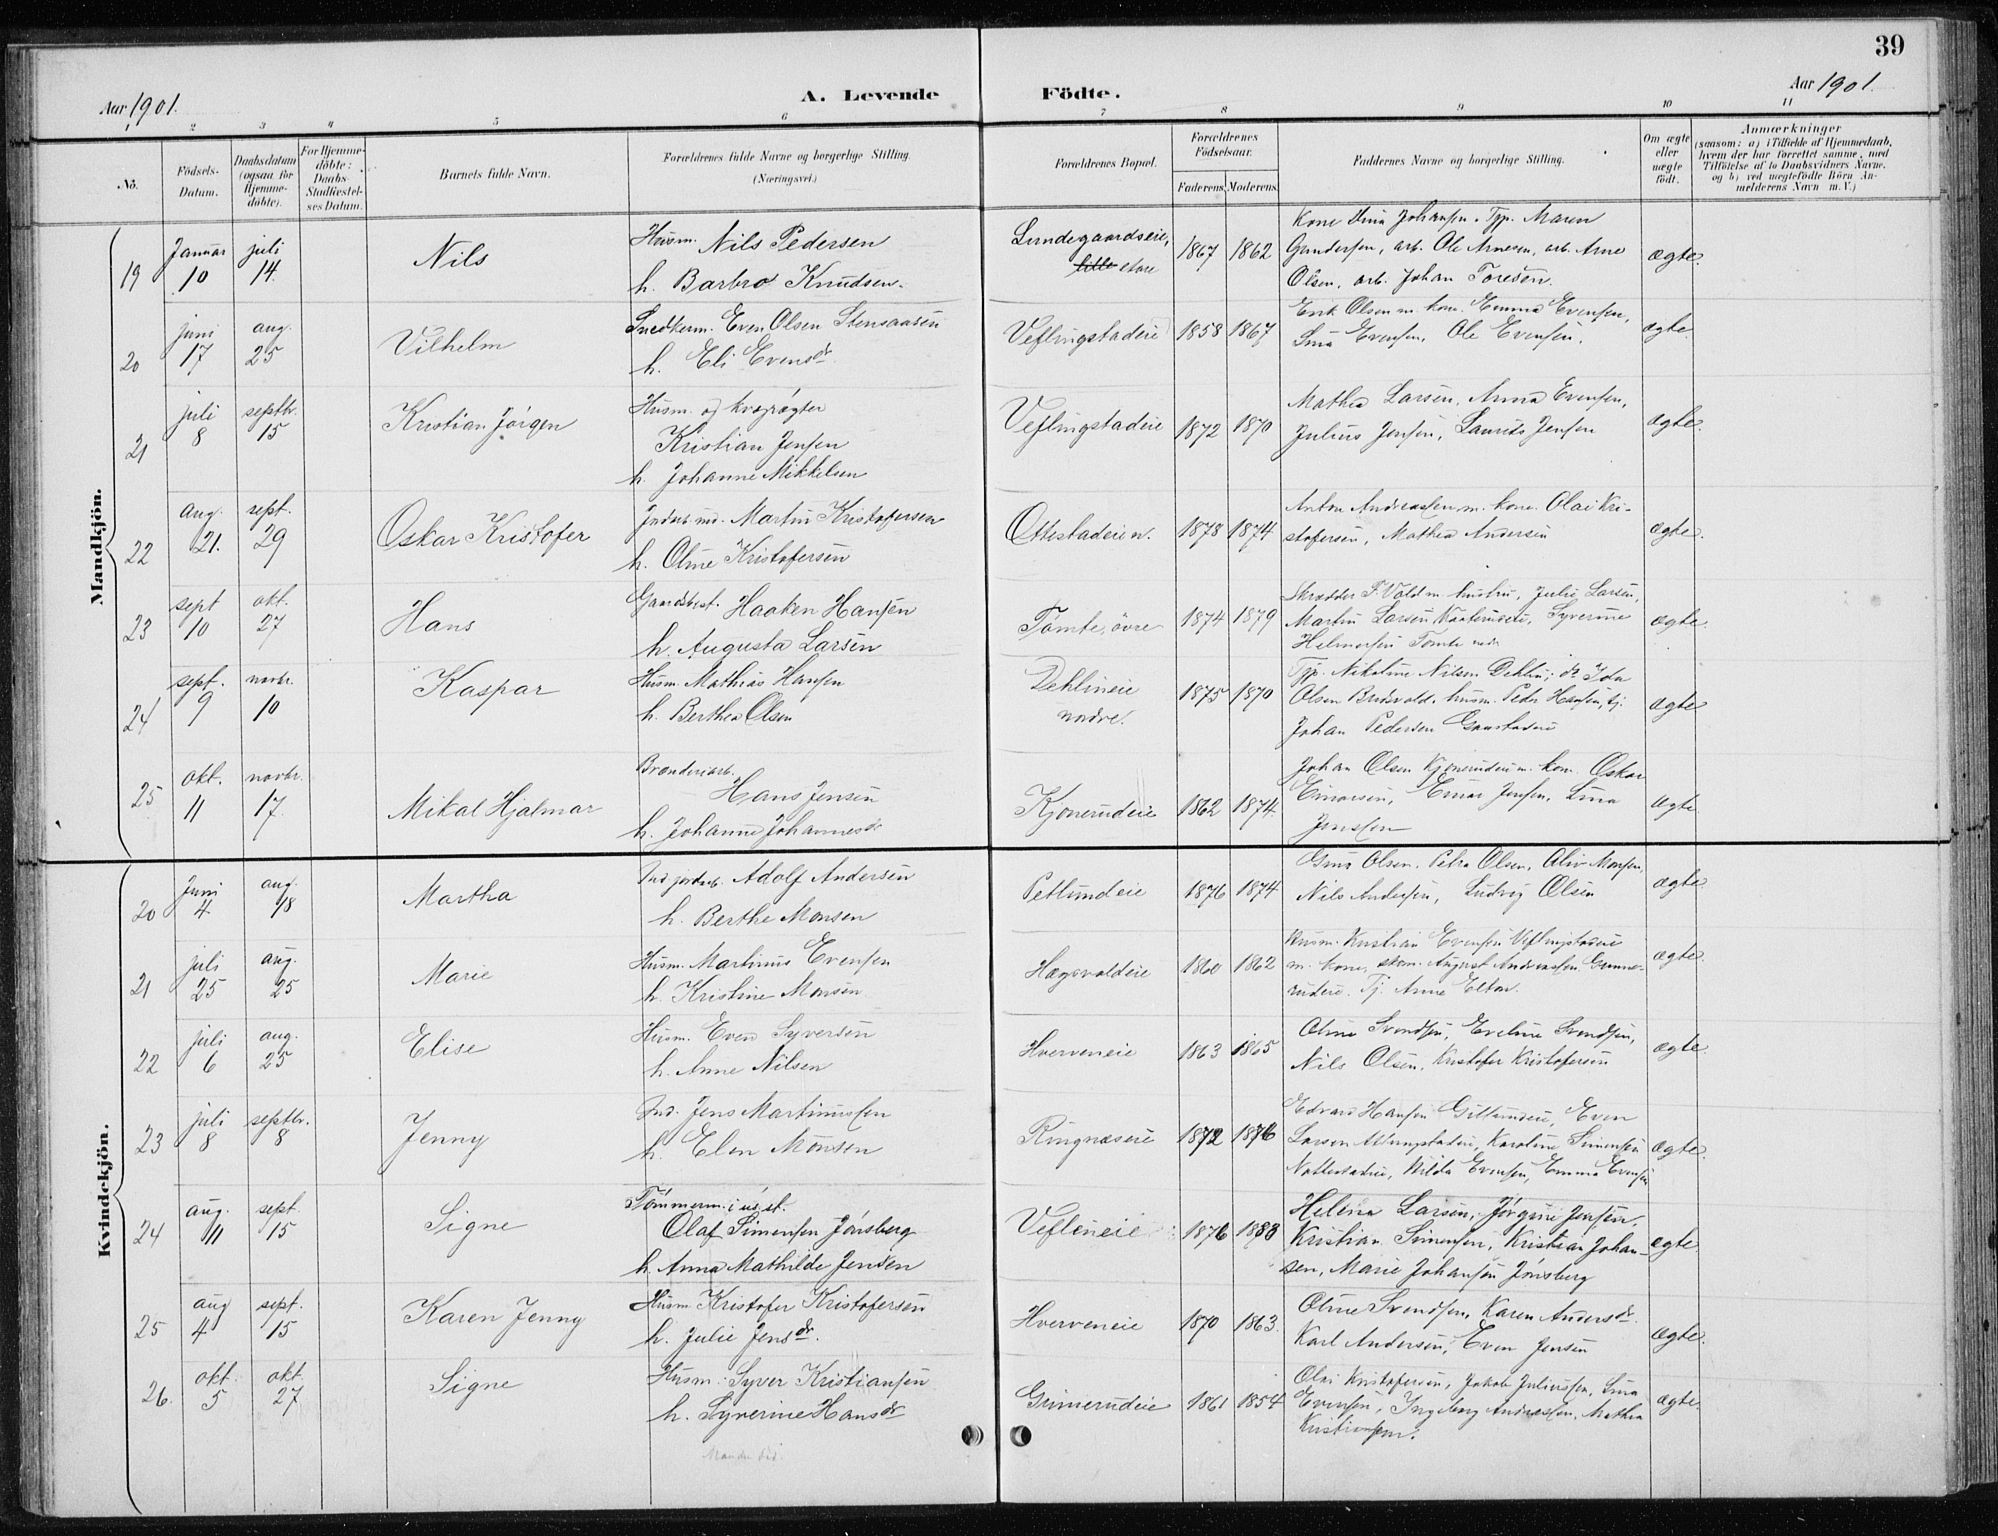 39
Aar 1901.
A. Levende
Födte.
Aar 1901.
1 2 3 4 5 6 7 8 9 10 11
Nô.
Födsels-Datum.
Daabsdatum (ogsaa for Hjemme-döbte).
For Hjemme-döbte: Daabs-Stadfæstel-ses Datum.
Barnets fulde Navn.
Forældrenes fulde Navne og borgerlige Stilling. (Næringsvei.)
Forældrenes Bopæl.
Forældrenes Födselsaar.
Faderens. Moderens.
Faddernes Navne og borgerlige Stilling.
Om ægte eller uægte födt.
Anmærkninger
(saasom: a) i Tilfælde af Hjemmedaab, hvem der har forrettet samme, med Tilföielse af to Daabsvidners Navne, og b) ved uægtefödte Börn An-melderens Navn m. V.)
Mandkjön.
19 Januar 10 juli 14. Nils
Husm. Nils Pedersen
h. Barbro Knudsen.
Lundegaardseie, lille store
1867 1862
Kone Dina Johansen. Tjp. Maren
Gundersen, arb. Ole Arnesen, arb. Arne
Olsen, arb. Johan Toresen.
ægte.
20 juni 17 aug. 25 Vilhelm
Snedkerm. Even Olsen Stensaasen
h. Eli Evensdr
Veflingstadeie 1858 1867
Erik Olsen m. kone. Emma Evensen,
Lina Evensen, Ole Evensen.
ægte.
21 juli 8 septbr. 15 Kristian Jörgen
Husm. og kvægrøgter
Kristian Jensen
h. Johanne Mikkelsen
Veflingstadeie 1872 1870
Mathea Larsen, Anna Evensen,
Julius Jensen, Laurits Jensen
ægte.
22 aug. 21. sept. 29 Oskar Kristofer
Martin Kristofersen
h. Oline Kristofersen
Ottestadeie n. 1878 1874
Anton Andreassen m. kone. Olai Kri-
stofersen, Mathea Andersen
ægte.
23 sept 10 okt. 27 Hans
Gaardbest. Haaken Hansen
h. Augusta Larsen
Tömte, övre 1874 1879
Skrædder P. Vold m. hustru, Julie Larsen,
Martin Larsen, Syverine
Helmersen Tömte
ægte.
24 sept. 9 novbr. 10 Kaspar
Husm. Mathias Hansen
h. Berthea Olsen
Dehlineie nedre. 1875 1870
Tjp. Nikoline Nilsen Dehlin; do Ida
Olsen, husm. Peder Hansen, tj.
Johan Pedersen Gaustadeie
ægte
25 okt. 11 novbr. 17. Mikal Hjalmar
Brænderiarb.
Hans Jensen
h. Johanne Johannesdr
Kjonerudeie 1862 1874.
Johan Olsen Kjonerudeie m. kone. Oskar
Einarsen, Einar Jensen, Lina
Jenssen
ægte
Kvindekjön.
20 Juni 4 aug. 18 Martha
Ind. jordarb. Adolf Andersen
h. Berthe Monsen
Petlundeie 1876 1874
Gina Olsen. Petra Olsen, Oliv Monsen,
Nils Andersen, Ludvig Olsen
ægte
21 juli 25 aug. 25 Marie
Husm. Martinus Evensen
h. Kristine Monsen
Hægsvoldeie 1860 1862
Husm. Kristian Evensen Veflingstadeie
m. kone, skom. August Andreassen Gunne-
rudeie. Tj. Anne Elton.
ægte
22 juli 6 aug. 25 Elise
Husm. Even Syversen
h. Anne Nilsen
Hverveneie 1863 1865
Oline Svendsen, Eveline Svendsen,
Nils Olsen, Kristofer Kristofersen
ægte
23 juli 8 septbr. 8 Jenny
Ind. Jens Martinussen
h. Elen Monsen
Ringnæseie 1872 1876
Edvard Hansen, Even
Larsen, Karoline Simensen
Hilda Evensen, Emma Evensen
ægte.
24 aug. 11 sept. 15 Signe
Tömmerm. i us. st.
Olaf Simensen Jönsberg
h. Anna Mathilde Jensen
Vefleneie 1876 1883
Helena Larsen, Jörgine Jensen,
Kristian Simensen, Kristian Johan-
sen, Marie Johansen Jönsberg
ægte.
25 aug 4 sept. 15 Karen Jenny
Husm. Kristofer Kristofersen
h. Julie Jensdr.
Hverveneie 1870 1863.
Oline Svendsen, Karen Andersdr
Karl Andersen, Even Jensen
ægte.
26. okt. 5 okt. 27 Signe
Husm. Syver Kristiansen
h. Syverine Hansdr
Gunnerudeie 1861 1854
Olai Kristofersen, Jakob Juliussen, Lina
Evensen, Ingeborg Andreassen, Mathea
Kristiansen.
ægte.